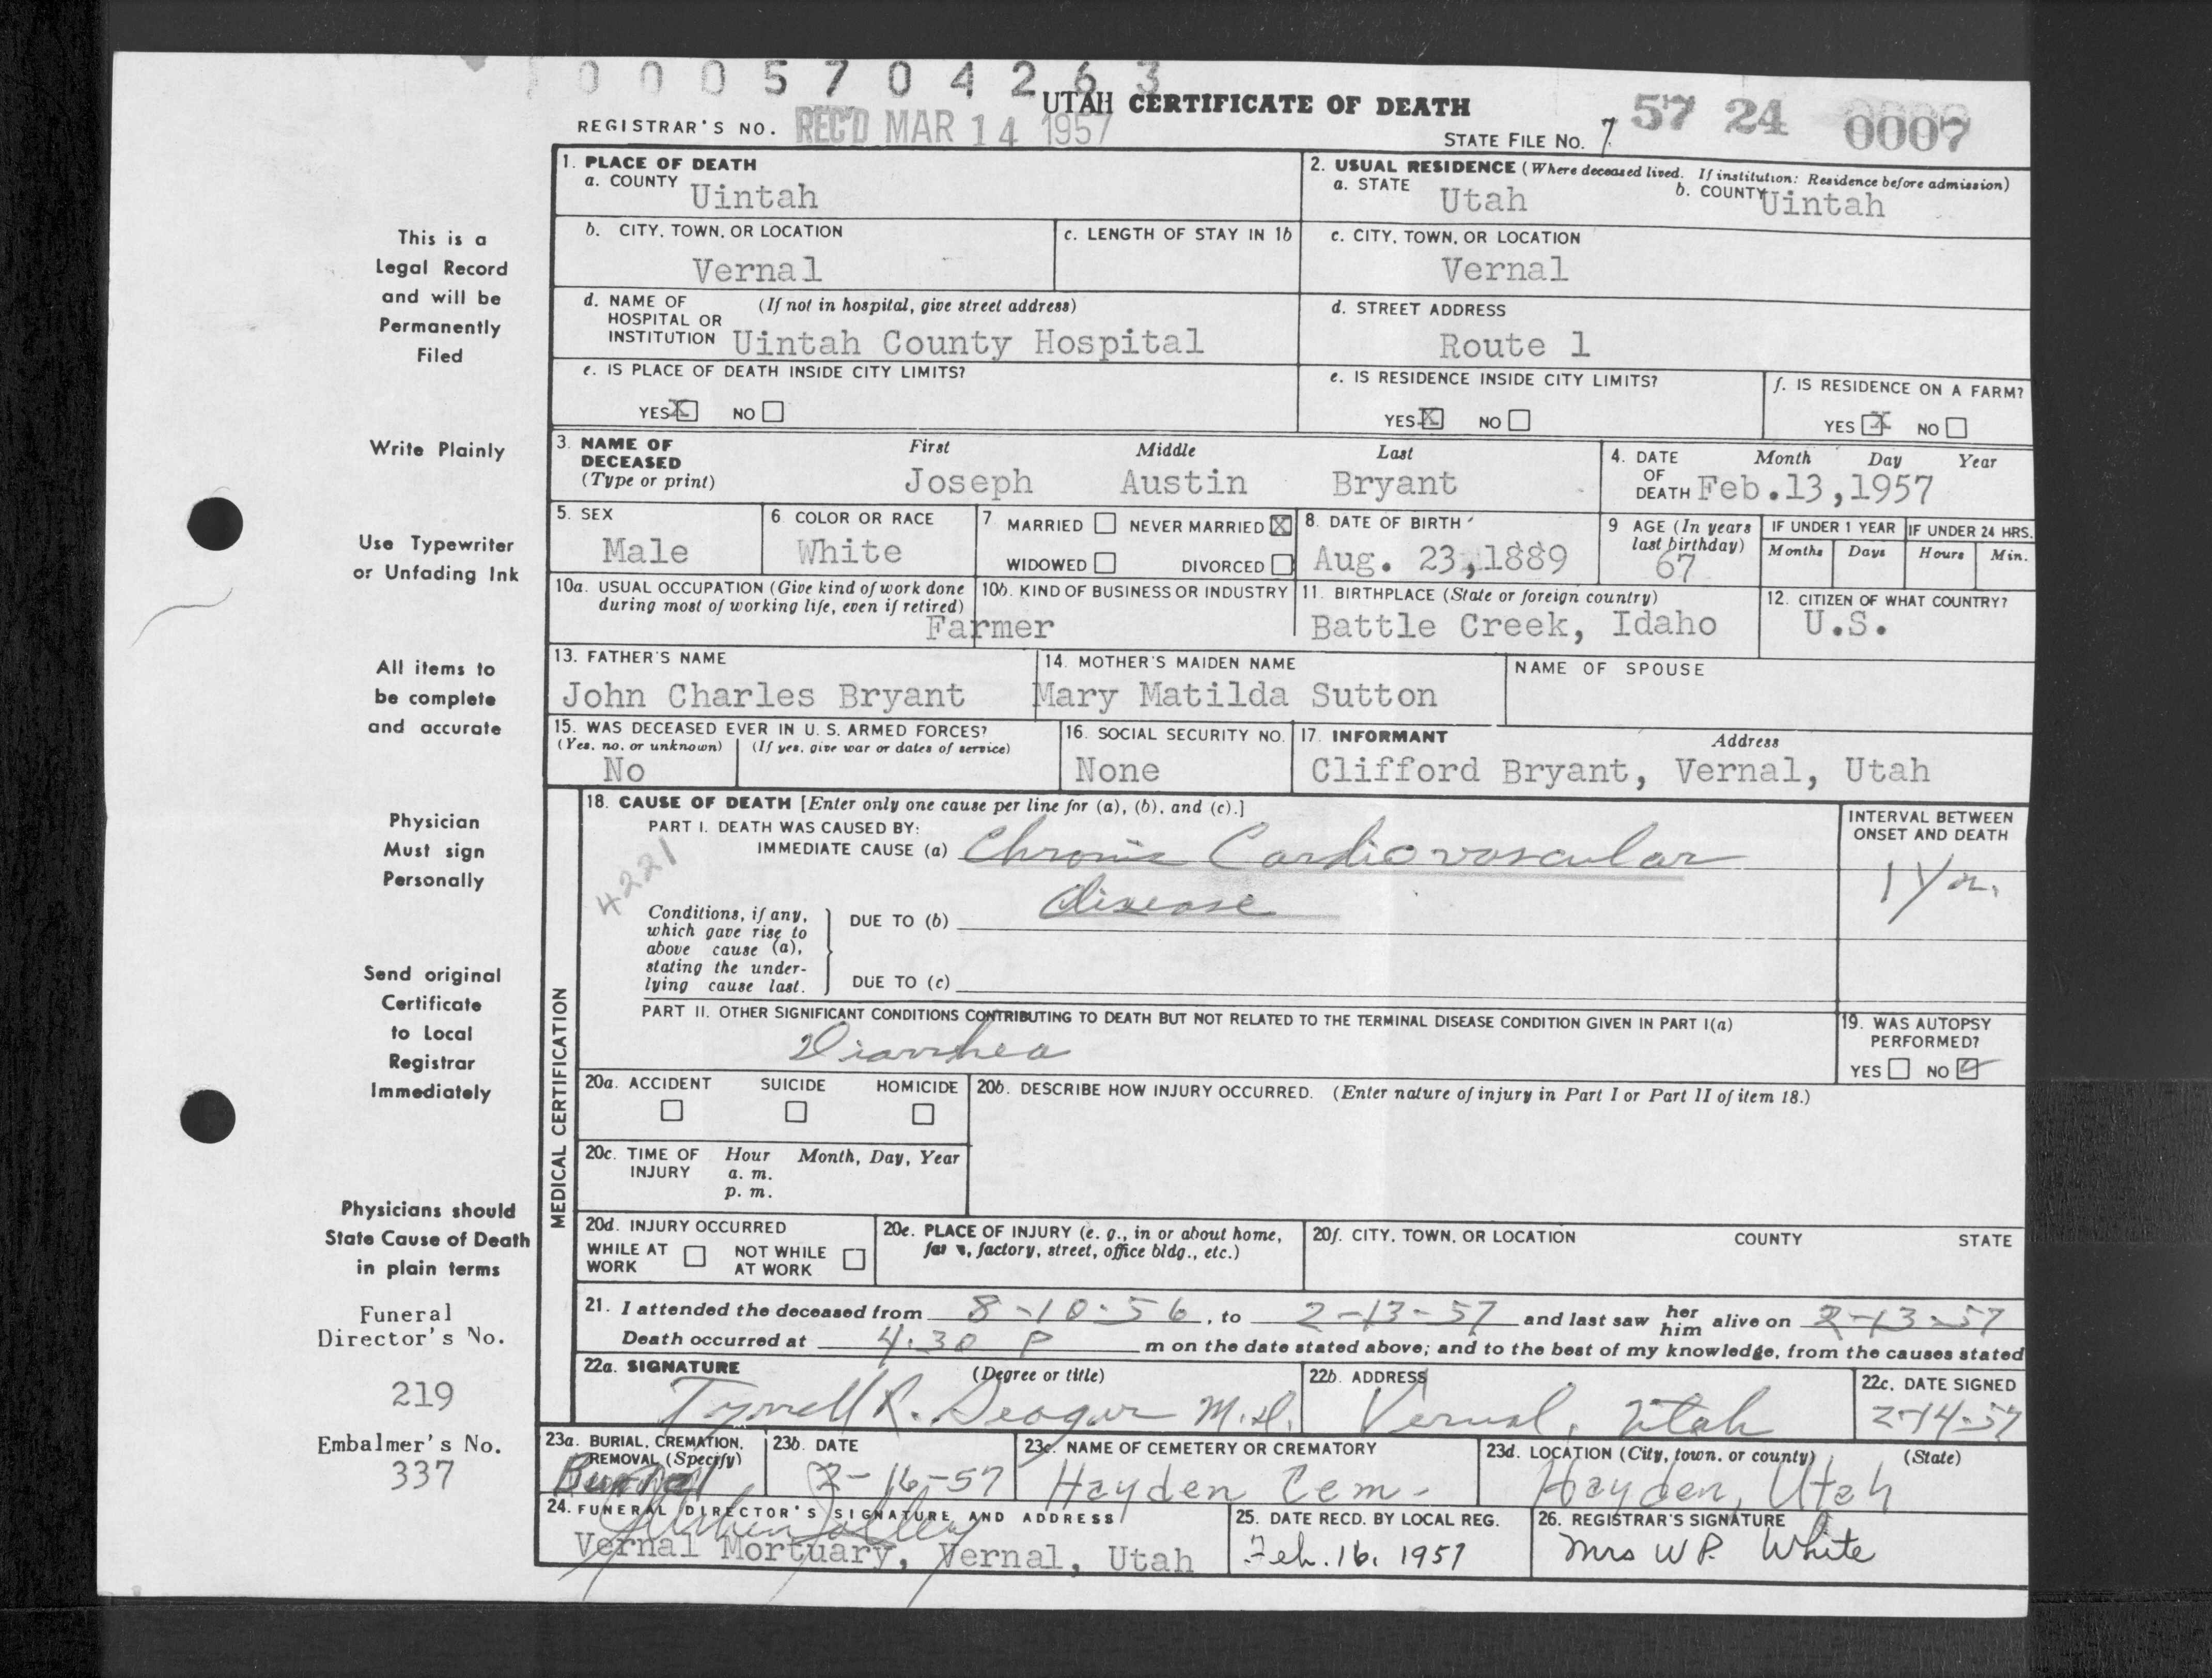 0005704263
UTAH CERTIFICATE OF DEATH
REGISTRAR'S NO. REC'D MAR 14 1957
STATE FILE NO. 7 57 24 0007
1. PLACE OF DEATH
a. COUNTY Uintah
2. USUAL RESIDENCE (Where deceased lived. If institution: Residence before admission)
a. STATE Utah b. COUNTY Uintah
b. CITY, TOWN, OR LOCATION Vernal
c. LENGTH OF STAY IN 1b
c. CITY, TOWN, OR LOCATION Vernal
d. NAME OF HOSPITAL OR INSTITUTION (If not in hospital, give street address) Uintah County Hospital
d. STREET ADDRESS Route 1
e. IS PLACE OF DEATH INSIDE CITY LIMITS?
YES X NO
e. IS RESIDENCE INSIDE CITY LIMITS?
YES X NO
f. IS RESIDENCE ON A FARM?
YES X NO
3. NAME OF DECEASED (Type or print)
First Middle Last
Joseph Austin Bryant
4. DATE OF DEATH Month Day Year
Feb.13,1957
5. SEX Male
6. COLOR OR RACE White
7 MARRIED NEVER MARRIED X
WIDOWED DIVORCED
8. DATE OF BIRTH Aug. 23,1889
9 AGE (In years last birthday) 67
IF UNDER 1 YEAR Months Days
IF UNDER 24 HRS. Hours Min.
10a. USUAL OCCUPATION (Give kind of work done during most of working life, even if retired) Farmer
10b. KIND OF BUSINESS OR INDUSTRY
11. BIRTHPLACE (State or foreign country) Battle Creek, Idaho
12. CITIZEN OF WHAT COUNTRY? U.S.
13. FATHER'S NAME John Charles Bryant
14. MOTHER'S MAIDEN NAME Mary Matilda Sutton
NAME OF SPOUSE
15. WAS DECEASED EVER IN U. S. ARMED FORCES?
(Yes, no, or unknown) (If yes, give war or dates of service)
No
16. SOCIAL SECURITY NO. None
17. INFORMANT Address
Clifford Bryant, Vernal, Utah
MEDICAL CERTIFICATION
18. CAUSE OF DEATH [Enter only one cause per line for (a), (b), and (c).]
PART I. DEATH WAS CAUSED BY:
IMMEDIATE CAUSE (a) Chronic Cardiovascular
disease
4221
INTERVAL BETWEEN ONSET AND DEATH
1 Yr.
Conditions, if any, which gave rise to above cause (a), stating the underlying cause last.
DUE TO (b)
DUE TO (c)
PART II. OTHER SIGNIFICANT CONDITIONS CONTRIBUTING TO DEATH BUT NOT RELATED TO THE TERMINAL DISEASE CONDITION GIVEN IN PART I(a)
Diarrhea
19. WAS AUTOPSY PERFORMED?
YES NO
20a. ACCIDENT SUICIDE HOMICIDE
20b. DESCRIBE HOW INJURY OCCURRED. (Enter nature of injury in Part I or Part II of item 18.)
20c. TIME OF INJURY Hour Month, Day, Year
a. m.
p. m.
20d. INJURY OCCURRED
WHILE AT WORK NOT WHILE AT WORK
20e. PLACE OF INJURY (e. g., in or about home, factory, street, office bldg., etc.)
20f. CITY, TOWN, OR LOCATION COUNTY STATE
21. I attended the deceased from 8-10-56, to 2-13-57 and last saw her him alive on 2-13-57
Death occurred at 4:30 P m on the date stated above; and to the best of my knowledge, from the causes stated
22a. SIGNATURE (Degree or title)
R. M.D.
22b. ADDRESS Vernal, Utah
22c. DATE SIGNED 2-14-57
23a. BURIAL, CREMATION, REMOVAL (Specify) Burial
23b. DATE 2-16-57
23c. NAME OF CEMETERY OR CREMATORY Hayden Cem.
23d. LOCATION (City, town, or county) (State)
Hayden, Utah
24. FUNERAL DIRECTOR'S SIGNATURE AND ADDRESS
Vernal Mortuary, Vernal, Utah
25. DATE RECD. BY LOCAL REG. Feb. 16, 1957
26. REGISTRAR'S SIGNATURE Mrs W P. White
This is a
Legal Record
and will be
Permanently
Filed
Write Plainly
Use Typewriter
or Unfading Ink
All items to
be complete
and accurate
Physician
Must sign
Personally
Send original
Certificate
to Local
Registrar
Immediately
Physicians should
State Cause of Death
in plain terms
Funeral
Director's No.
219
Embalmer's No.
337